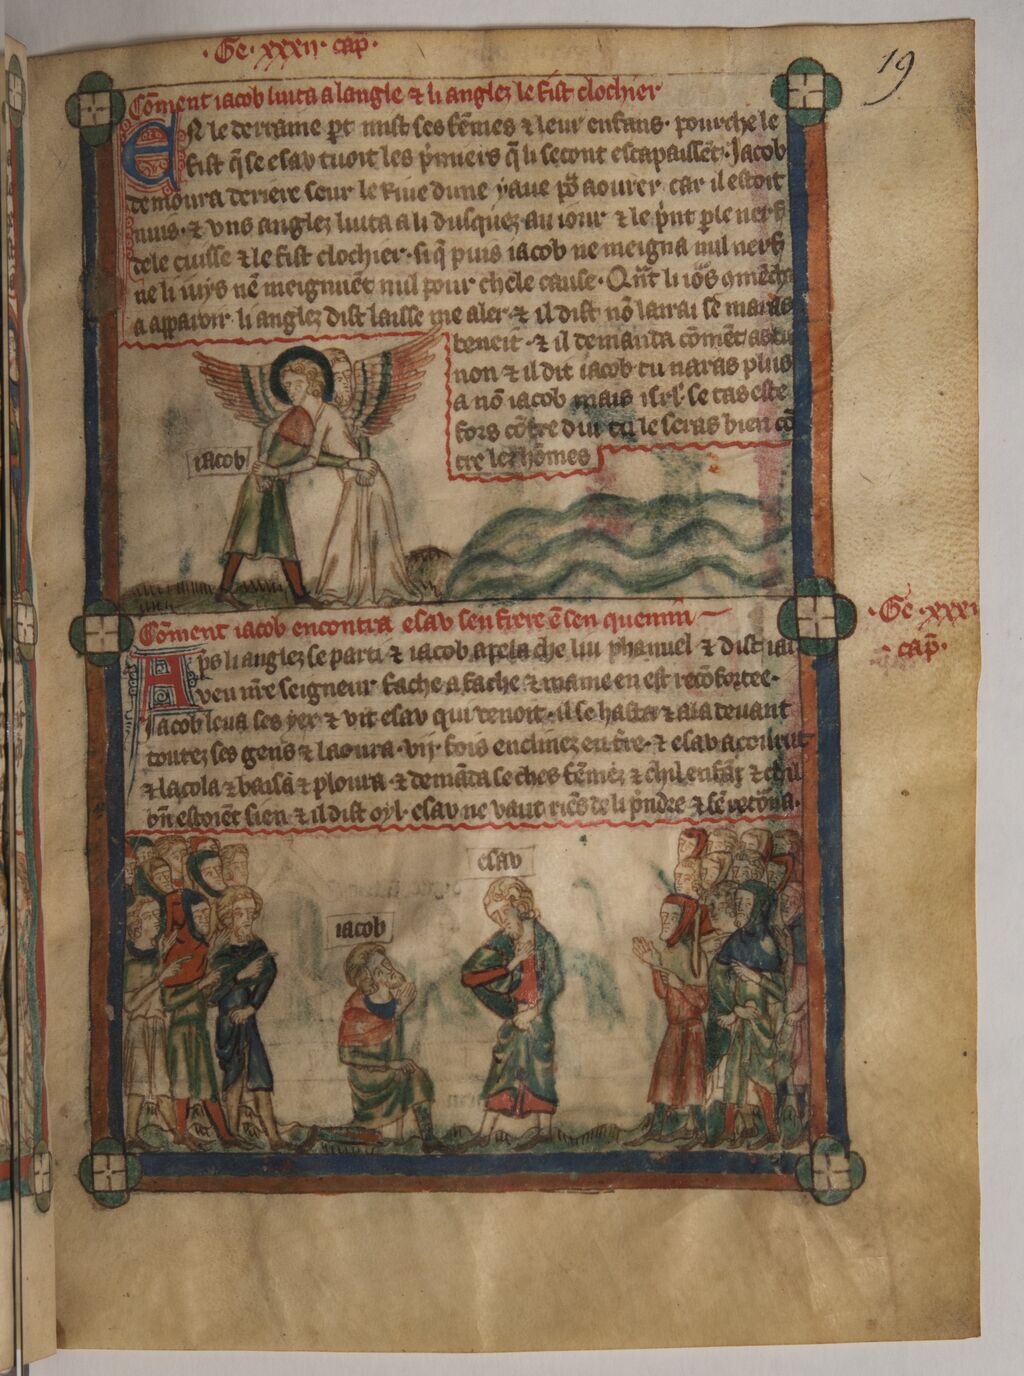 ·Ge· xxxii· cap̃·
19
Cõment iacob luita a langle ⁊ li anglez le fist clochier
En le derraine p̃t mist ses fẽmes ⁊ leur enfans· pour che le
fist q̃ se esav tuoit les p̃miers q̃ li secont escapaissẽt· Jacob
demoura deriere seur le rive dune yaue po᷑ aourer car il estoit
nuis· ⁊ vns anglez luita a li dusquez au iour ⁊ le p̃nt p̱ le nerf
dele cuisse ⁊ le fist clochier· si q̃ puis iacob ne meigna nul nerf
ne li iuys nẽ meignuẽt nul pour chele cause· Qñt li io᷑s 9mẽcha
a apparoir li anglez dist laisse me aler ⁊ il dist nõ lairai se maras
beneit· ⁊ il demanda cõmẽt as tu
non ⁊ il dit iacob tu naras plus
a nõ iacob mais isrl̃· se tas este
fors cõtre diu tu le seras bien cõ
tre lez hõmes
iacob
Cõment iacob encontra esav sen frere ẽ sen quemin
·Ge· xxxi
cap̃·
Ap̃s li anglez se parti ⁊ iacob apela che liu phanuel ⁊ dist iai
veu nr̃e seigneur fache a fache ⁊ mame en est recõfortee·
Jacob leua ses yex ⁊ vit esav qui venoit· il se hasta ⁊ ala devant
toutez ses gens ⁊ laoura ·vij· fois enclinez en t̃re· ⁊ esav acourut
⁊ lacola ⁊ baisa ⁊ ploura ⁊ demãda se ches fẽmez ⁊ chil enfãt ⁊ chil
bñ estoiẽt sien ⁊ il dist oyl· esav ne vaut riẽs de li p̃ndre ⁊ sẽ reto᷑na·
esav
iacob